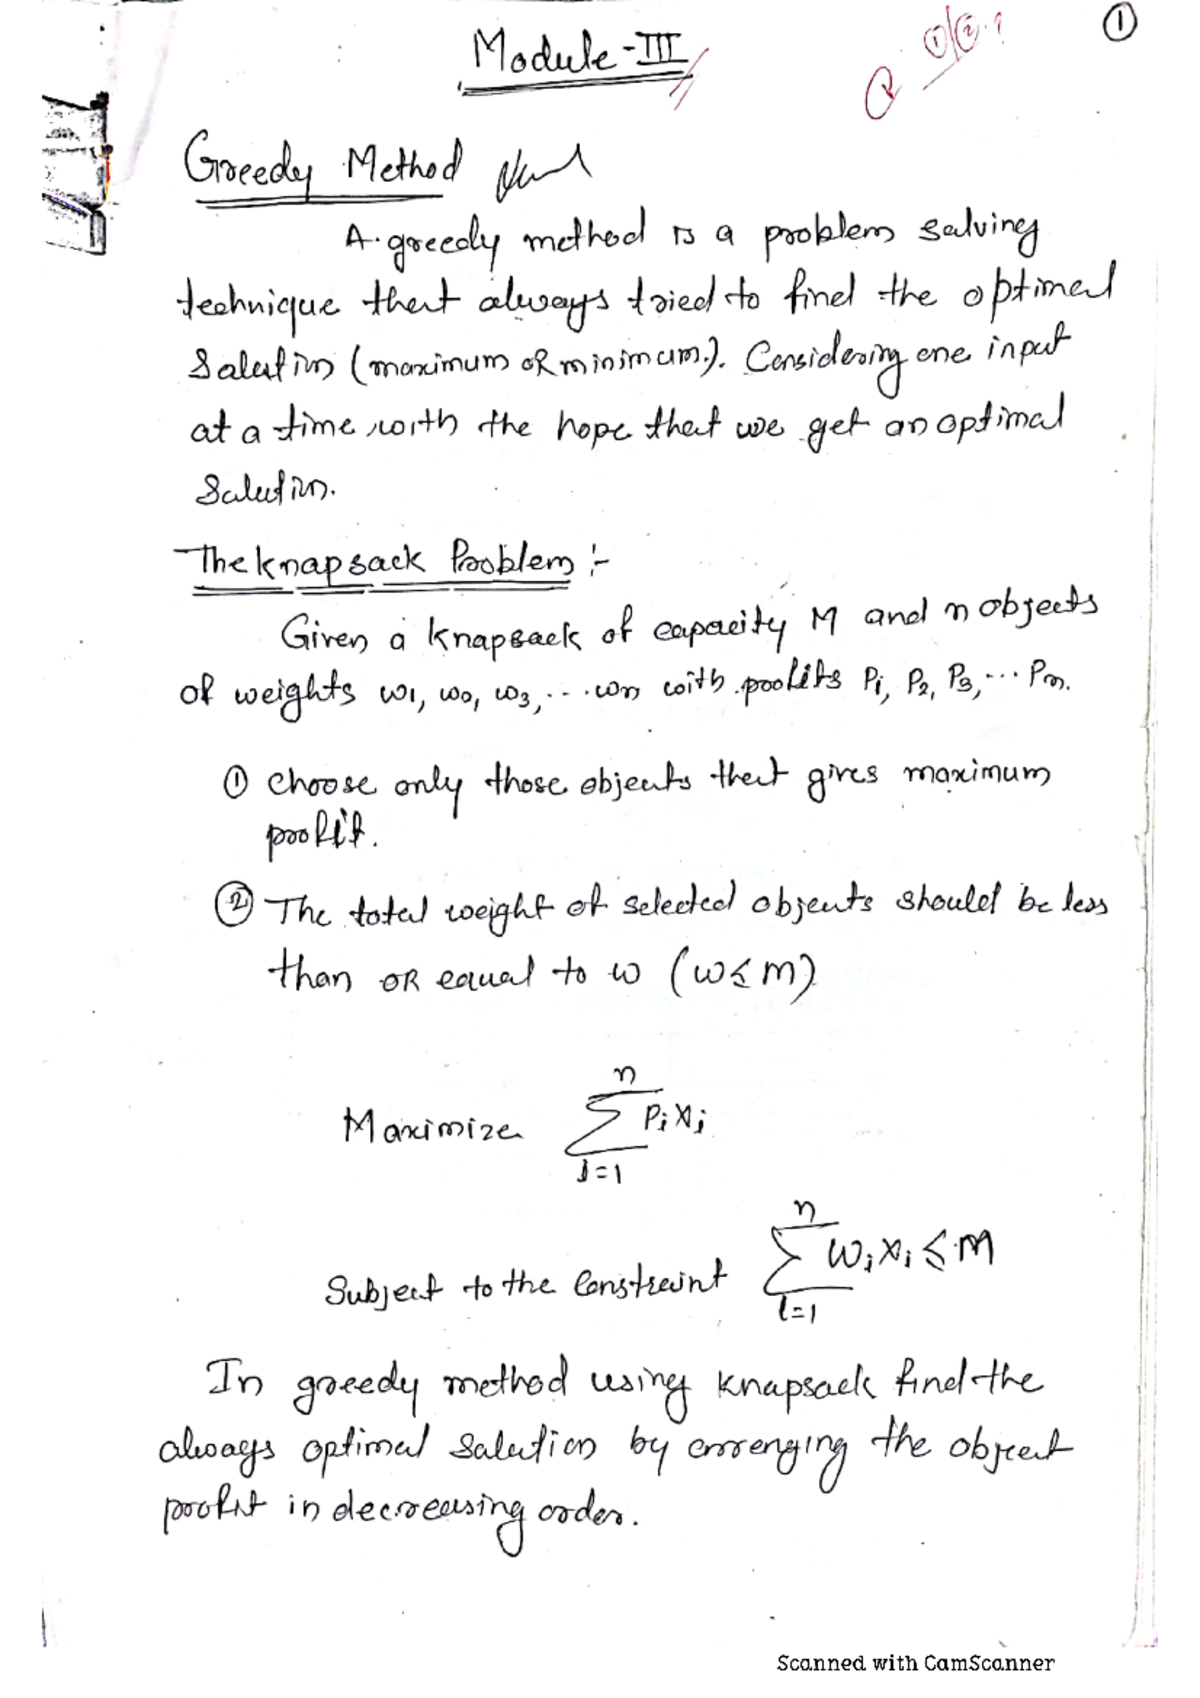 ①
Module-III
Greedy Method
A greedy method is a problem salving
technique that always tried to find the optimal
Salution (maximum OR minimum). Considering one input
at a time with the hope that we get an optimal
Salution.
The knapsack Problem :-
Given a knapsack of capacity M and n objects
of weights w1, w2, w3, ... wn with profits P1, P2, P3, ... Pn.
① choose only those objects that gives maximum
profit.
② The total weight of selected objects should be less
than OR equal to w (w ≤ m)
Maximize n∑i=1 Pi Xi
Subject to the Constraint n∑i=1 Wi Xi ≤ M
In greedy method using knapsack find the
always optimal salution by arrenging the object
profit in decreasing order.
Scanned with CamScanner